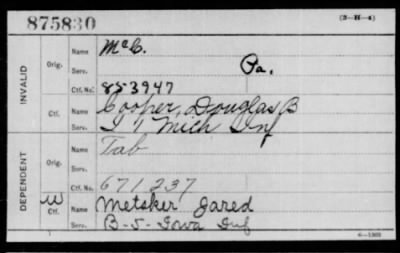 875830 (3-H-4)
INVALID Orig. Name McC.
Serv. Pa.
Ctf. No. 853947
Ctf. Name Cooper, Douglas B
Serv. I 1 Mich Inf
DEPENDENT Orig. Name Tab
Serv.
Ctf. No. 671237
W Ctf. Name Metsker Jared
Serv. B-5-Iowa Inf